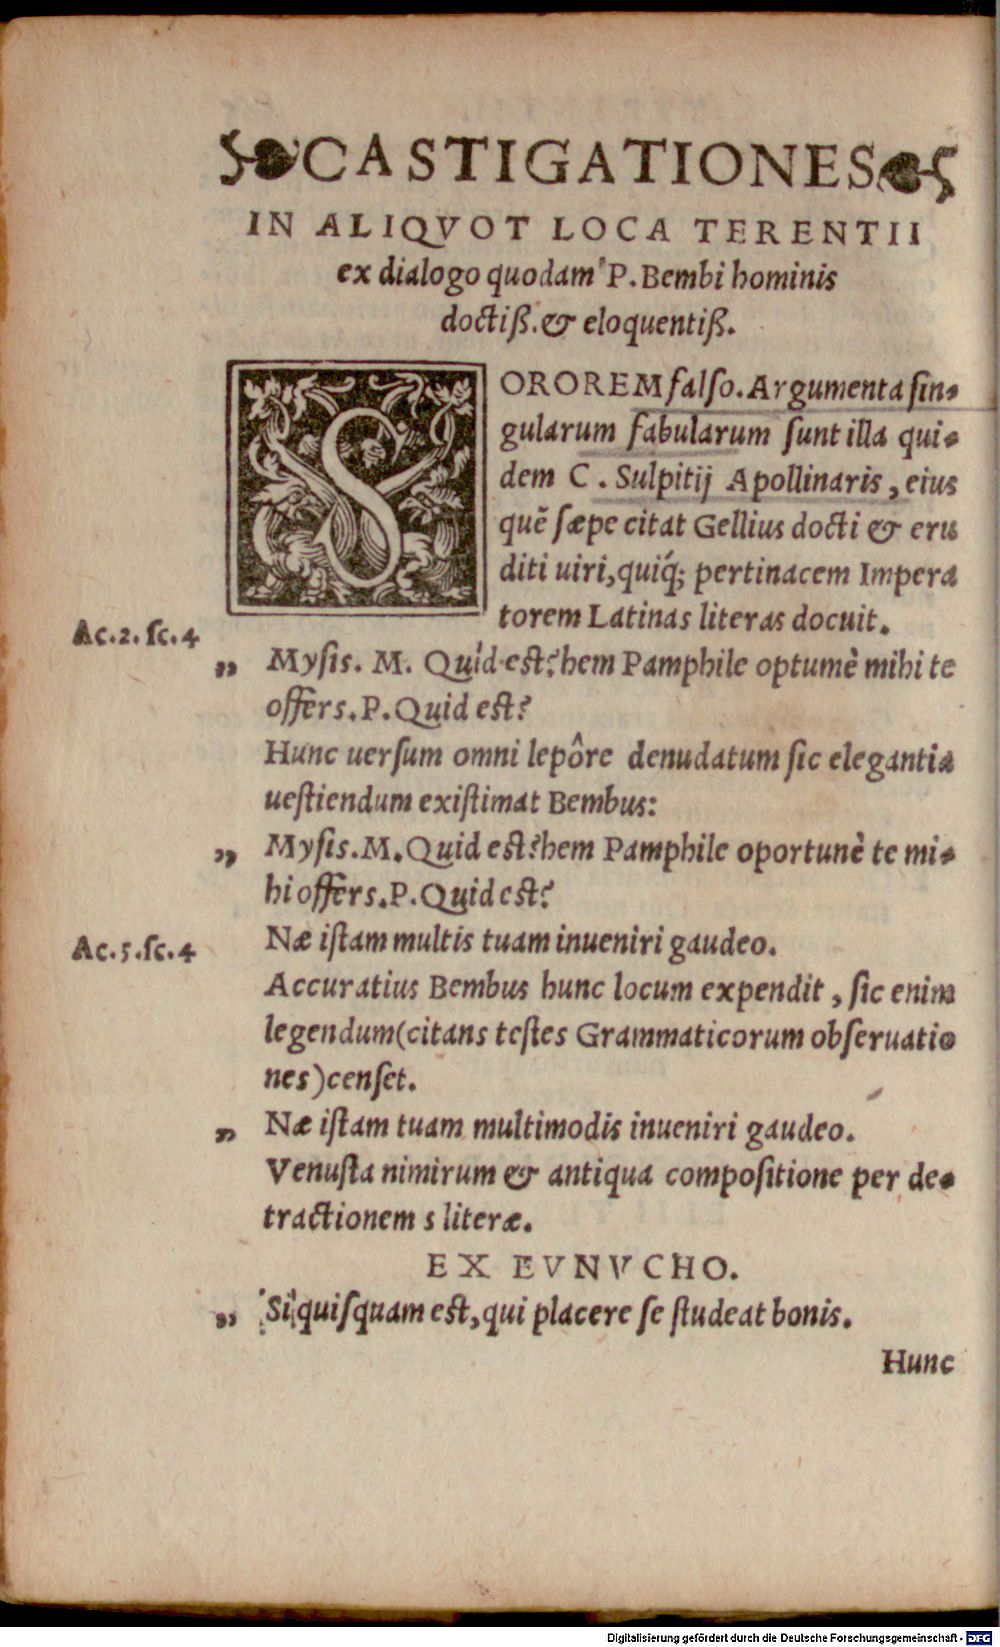 CASTIGATIONES
IN ALIQVOT LOCA TERENTII
ex dialogo quodam P. Bembi hominis
doctiß. & eloquentiß.
SOROREM falſo. Argumenta ſin-
gularum fabularum ſunt illa qui-
dem C. Sulpitij Apollinaris, eius
quẽ ſæpe citat Gellius docti & eru
diti uiri, quiq́; pertinacem Impera
torem Latinas literas docuit.
Ac. 2. ſc. 4
„ Myſis. M. Quid est? hem Pamphile optumè mihi te
offers. P. Quid eſt?
Hunc uerſum omni lepôre denudatum ſic elegantia
ueſtiendum exiſtimat Bembus:
„ Myſis. M. Quid eſt? hem Pamphile oportunè te mi-
hi offers. P. Quid eſt?
Ac. 5. ſc. 4
Næ iſtam multis tuam inueniri gaudeo.
Accuratius Bembus hunc locum expendit, ſic enim
legendum (citans teſtes Grammaticorum obſeruatio
nes) cenſet.
„ Næ iſtam tuam multimodis inueniri gaudeo.
Venuſta nimirum & antiqua compoſitione per de-
tractionem s literæ.
EX EVNVCHO.
„ Si quiſquam eſt, qui placere ſe ſtudeat bonis.
Hunc
Digitalisierung gefördert durch die Deutsche Forschungsgemeinschaft - DFG